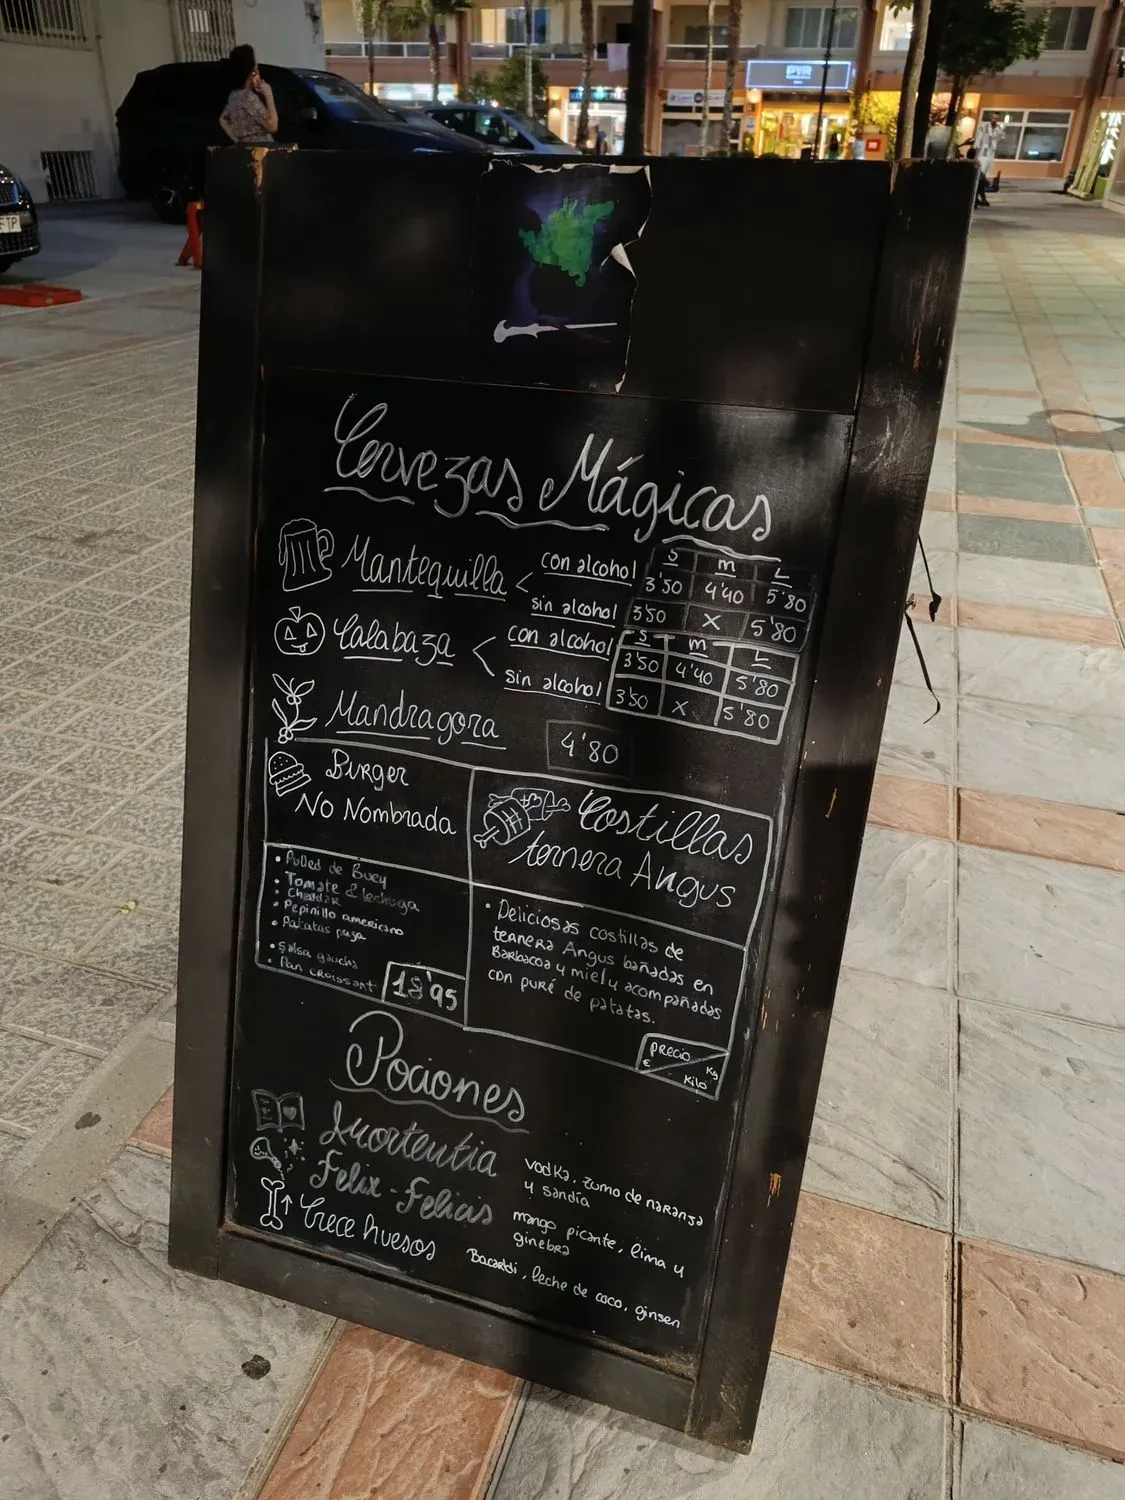 Cervezas Mágicas
Mantequilla < con alcohol
S m L
3'50 4'40 5'80
sin alcohol 3'50 X 5'80
Calabaza < con alcohol
S m L
3'50 4'40 5'80
sin alcohol 3'50 X 5'80
Mandragora 4'80
Burger
No Nombrada
• Pulled de Buey
• Tomate & lechuga
• Cheddar
• Pepinillo americano
• Patatas paja
• Salsa gaucha
• Pan croissant
18'95
Costillas
ternera Angus
• Deliciosas costillas de
ternera Angus bañadas en
Barbacoa y miel y acompañadas
con puré de patatas.
precio Kg
€ - Kilo
Pociones
Amortentia
vodka, zumo de naranja
y sandía
Felix-Felicis
mango picante, lima y
ginebra
Crece huesos
Bacardi, leche de coco, ginsen